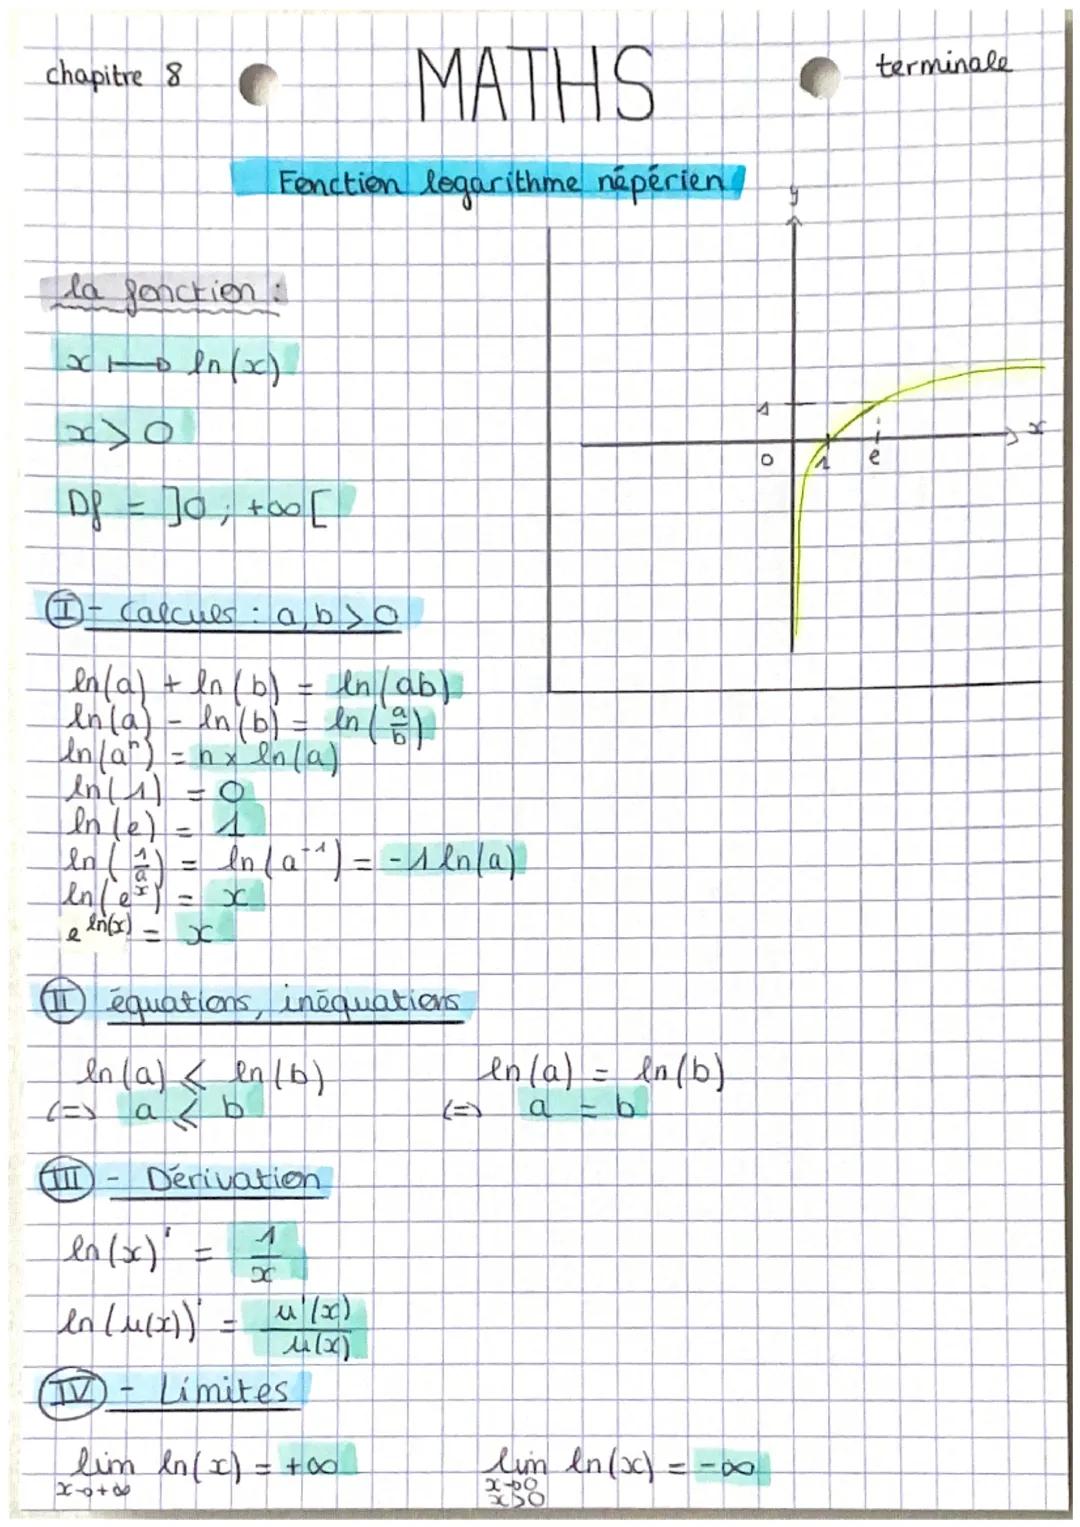 chapitre 8
MATHS
terminale
Fonction logarithme népérien
la fonction :
x ⟼ ln(x)
x > 0
Df = ]0 ; +∞[
y
1
x
0 1 e
I - Calculs : a, b > 0
ln(a) + ln(b) = ln(ab)
ln(a) - ln(b) = ln(a/b)
ln(aⁿ) = n x ln(a)
ln(1) = 0
ln(e) = 1
ln(1/a) = ln(a⁻¹) = -1 ln(a)
ln(eˣ) = x
e^ln(x) = x
II équations, inéquations
ln(a) ⩽ ln(b) ln(a) = ln(b)
(=> a ⩽ b (=> a = b
III - Dérivation
ln(x)' = 1/x
ln(u(x))' = u'(x)/u(x)
IV - Limites
lim ln(x) = +∞ lim ln(x) = -∞
x→+∞ x→0
x>0